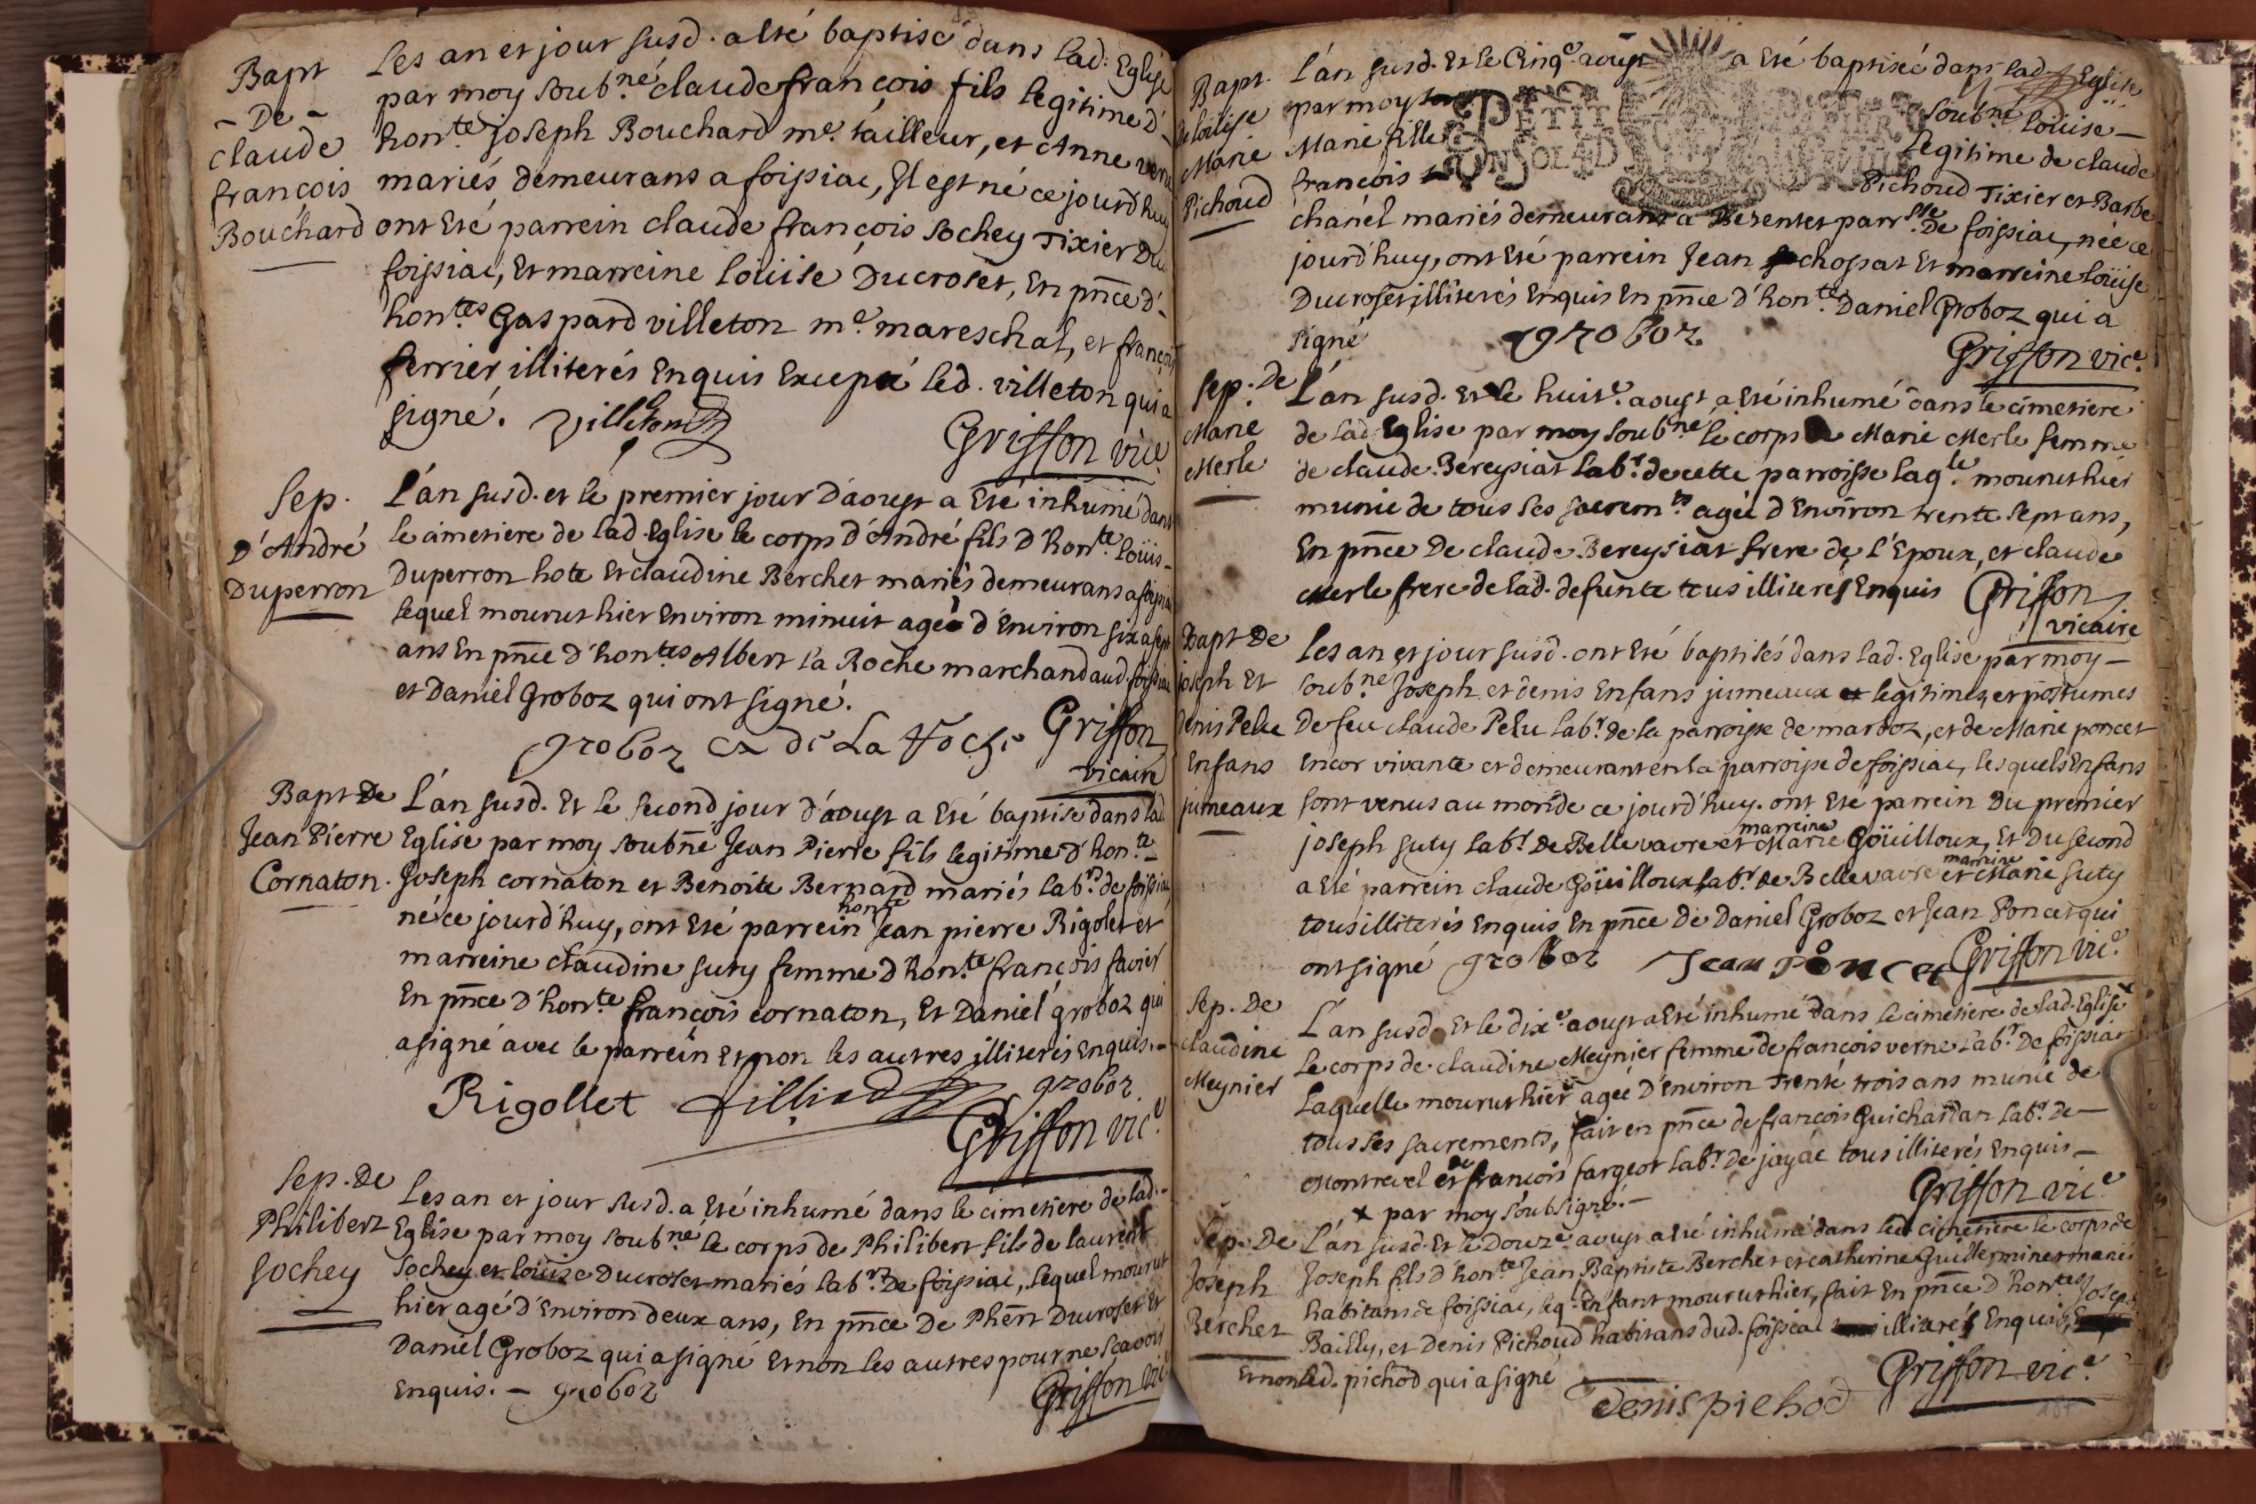 Bapt
- De -
claude
françois
Bouchard
Les an et jour susd. a eté baptisé dans lad. Eglise
par moy soubné claude françois fils legitime d'
honte joseph Bouchard me. tailleur, et Anne
mariés demeurans a foissiac, Il est né ce jourdhuy
ont eté parrein claude françois Sochey Tixier Du
foissiac, Et marreine loüise Ducroset, En pnce d'-
hontes Gaspard villeton me mareschal, et françois
ferrier illiterés Enquis Excepté led. villeton qui a
signé. Villeton
Griffon vice
Sep.
D'André
Duperron
L'an susd. et le premier jour D'aoust a Eté inhumé dans
le cimetiere de lad. Eglise le corps d'André fils d'honte loüis -
Duperron hote Et claudine Berchet mariés demeurans a foissia
lequel mourut hier Environ minuit agé d'Environ six a sept
ans En pnce d'hontes Albert La Roche marchand aud. foissiac
et Daniel Groboz qui ont signé.
groboz De La Roche Griffon
vicaire
Bapt De
Jean Pierre
Cornaton.
L'an susd. Et le second jour d'aoust a Eté baptisé dans lad
Eglise par moy soubné Jean Pierre fils legitime d'honte -
Joseph cornaton et Benoite Bernard mariés labrs de foissiac,
né ce jourd'huy, ont Eté parrein honte Jean pierre Rigolet et
marreine claudine suty femme d'honte françois favier
En pnce d'honte françois cornaton, Et Daniel groboz qui
a signé avec le parrein Et non les autres illiterés Enquis. -
Rigollet groboz
Griffon vice
Sep. De
Philibert
Sochey
Les an et jour susd. a Eté inhumé dans le cimetiere de lad. -
Eglise par moy soubné le corps de Philibert fils de laurent
Sochey et loüise Ducroset mariés labrs De foissiac, lequel mourut
hier agé d'Environ deux ans, En pnce De Phert Ducroset Et
Daniel Groboz qui a signé Et non les autres pour ne scavoir
Enquis. - groboz
Griffon vic
Bapt.
De loüise
Marie
Pichoud
L'an susd. Et le Cinqe aoust a Eté baptisé dans lad. Eglise
par moy soubné loüise -
Marie fille legitime de claude
françois Pichoud Tixier et Barbe
PETIT PAPIER
chanel mariés demeurans a Bezentet parrsse De foissiac, née ce
jourd'huy, ont Eté parrein Jean chossat Et marreine loüise
Ducroset illiterés Enquis En pnce d'honte Daniel Groboz qui a
signé groboz
Griffon vice.
Sep. De
Marie
Merle
L'an susd. Et le huite. aoust a Eté inhumé dans le cimetiere
de lad. Eglise par moy soubné le corps De Marie Merle femme
de claude Bereysiat labr. de cette parroisse laqle mourut hier
munie de tous ses sacremts agée d'Environ trente sept ans,
En pnce De claude Bereysiat frere de l'Epoux, et claude
Merle frere de lad. defunte tous illiterés Enquis Griffon
vicaire
Bapt De
joseph Et
Denis Pelu
Enfans
jumeaux
Les an et jour susd. ont Eté baptisés dans lad. Eglise par moy -
soubné Joseph et denis Enfans jumeaux legitimes et postumes
De feu claude Pelu labr. de la parroisse de marboz, et de Marie poncet
Encor vivante et demeurant en la parroisse de foissiac, les quels Enfans
sont venus au monde ce jourd'huy. ont Eté parrein Du premier
joseph suty labr. De Bellevavre et marreine Marie Goüilloux, Et Du second
a Eté parrein claude Goüilloux labr De Bellevavre et marreine Marie Suty
tous illiterés Enquis En pnce de Daniel Groboz et Jean Poncet qui
ont signé groboz Jean Poncet Griffon vice
Sep. De
claudine
Meynier
L'an susd. Et le dixe aoust a Eté inhumé dans le cimetiere de lad. Eglise x
le corps de claudine Meynier femme de françois verne labr. De foissiac
laquelle mourut hier agée d'Environ Trente trois ans munie de
tous ses sacrements, fait en pnce de françois Guichardan labr. de -
Montrevel et de françois fargeot labr. De jayac tous illiterés Enquis -
x par moy soubsigné. -
Griffon vice
Sep. De
Joseph
Berchet
L'an susd. Et le Douze aoust a Eté inhumé dans led. cimetiere le corps de
Joseph fils d'honte Jean Baptiste Berchet et catherine Guillerminet mariés
habitans de foissiac, leq. Enfant mourut hier, fait En pnce d'hontes Josep.
Bailly, et Denis Pichoud habitans dud. foissiac illiterés Enquis,
Et non led. pichod qui a signé
Griffon vice
Denis pichod